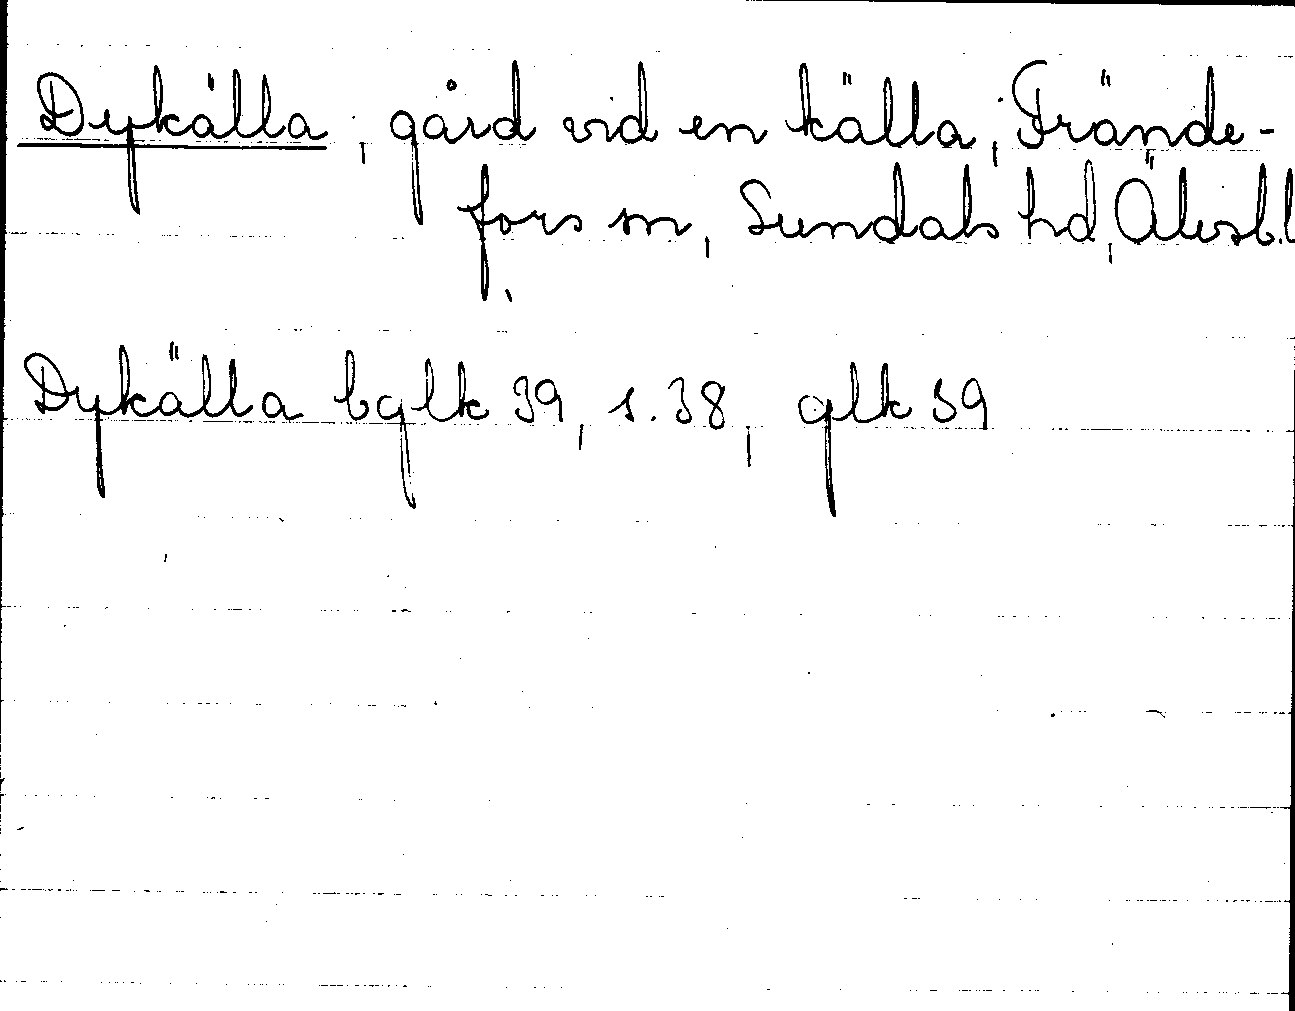 Dykälla, gård vid en källa, Frände-
fors sn, Sundals hd, Älvsb.l
Dykälla bglk 39, s. 38, glk 39